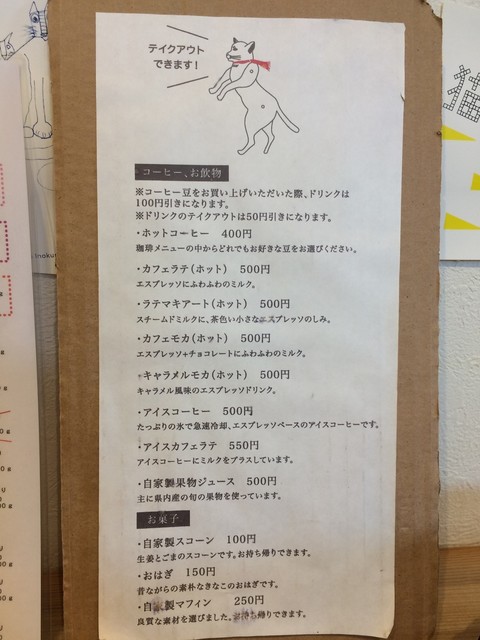 テイクアウト
できます！
・コーヒー、お飲物
※コーヒー豆をお買い上げいただいた際、ドリンクは
100円引きになります。
※ドリンクのテイクアウトは50円引きになります。
・ホットコーヒー　400円
珈琲メニューの中からどれでもお好きな豆をお選びください。
・カフェラテ（ホット）　500円
エスプレッソにふわふわのミルク。
・ラテマキアート（ホット）　500円
スチームドミルクに、茶色い小さなエスプレッソのしみ。
・カフェモカ（ホット）　500円
エスプレッソ+チョコレートにふわふわのミルク。
・キャラメルモカ（ホット）　500円
キャラメル風味のエスプレッソドリンク。
・アイスコーヒー　500円
たっぷりの氷で急速冷却、エスプレッソベースのアイスコーヒーです。
・アイスカフェラテ　550円
アイスコーヒーにミルクをプラスしています。
・自家製果物ジュース　500円
主に県内産の旬の果物を使っています。
お菓子
・自家製スコーン　100円
生姜とごまのスコーンです。お持ち帰りできます。
・おはぎ　150円
昔ながらの素朴なきなこのおはぎです。
・自家製マフィン　250円
良質な素材を選びました。お持ち帰りできます。
猫